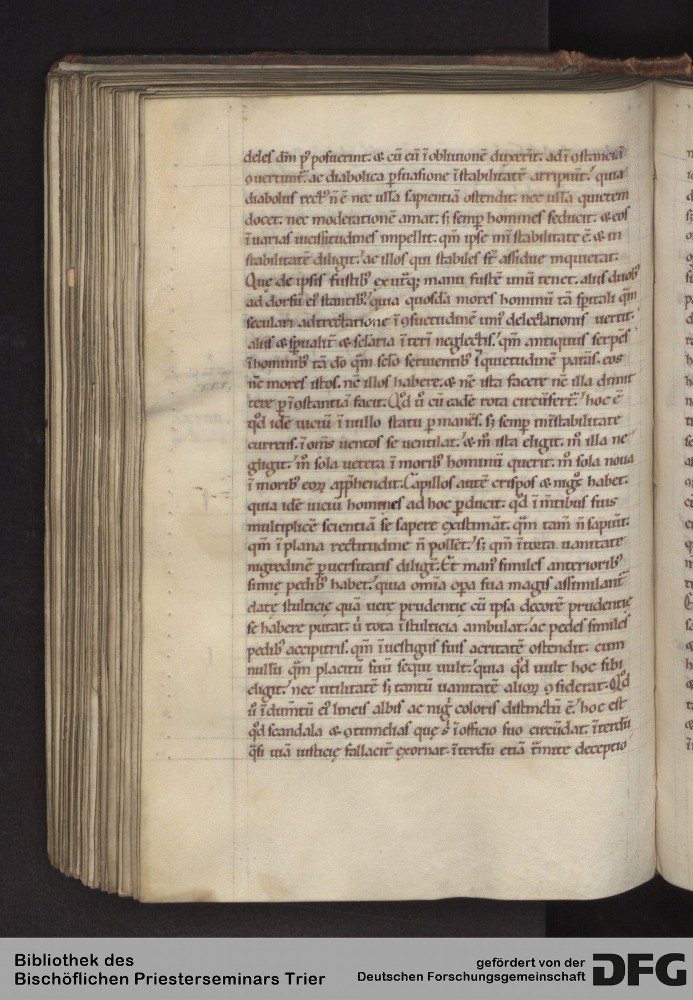 deles dm̄ p̄posuerint. & cū eū ī obliuionē duxerit. ad īꝯstanciā
ꝯuertunt̄. ac diabolica ꝑsuasione īstabilitatē arripiunt̄.' quia
diabolus rect᷒ n̄ ē nec ulla sapientiā ostendit. nec ulla quietem
docet. nec moderationē amat. s; semꝑ homines seducit. & eos
ī uarias uicissitudines impellit. qm̄ ipse īn̄ stabilitate ē. & in
stabilitatē diligit.' ac illos qui stabiles st̄ assidue inquietat.
Que de ipsis fustib᷒ ex utq; manu fustē unū tenet. alius duob᷒
ad dorsū ei᷒ stantib᷒.' quia quosdā mores hominū tā spitali qm̄
seculari adtrectatione ī ꝯsuetudinē uni᷒ delectationis uertit.
aliis & spualit̄ & sclāria īteri neglectis.' qm̄ antiquus serpēs
ī hominib᷒ tā dō qm̄ sclo seruientib᷒ īquietudinē parās. eos
nc̄ mores istos. nc̄ illos habere. & nc̄ ista facere nc̄ illa dimit
tere ꝑ īꝯstantiā facit. Qd̄ u̇ cū eadē rota circūfert̄.' hoc ē
qd̄ idē uiciū ī nullo statu ꝑmanēs. s; semꝑ īn̄stabilitate
currens. ī om̄s uentos se uentilat.' & m̊ ista eligit. m̊ illa ne
gligit. m̊ sola uetera ī morib᷒ hominū querit. m̊ sola noua
ī morib᷒ eoꝝ app̄hendit. Capillos autē crispos & nig᷒s habet.
quia idē uiciū homines ad hoc ꝑducit. qd̄ ī m̄tibus suis
multiplicē scientiā se sapere existimāt. qm̄ tam̄ n̄ sapiunt.
qm̄ ī plana rectitudine n̄ pollet̄.' s; qm̄ ī torta uanitate
nigredinē ꝑuersitatis diligt̄. Et man᷒ similes anterioribꝰ
simię pedib᷒ habet.' quia om̄ia oꝑa sua magis assimilant̄
elatę stulticię quā uerę prudentię cū ipsa decorē prudentię
se habere putat. u̇ tota ī stulticia ambulat.' ac pedes similes
pedib᷒ accipitris. qm̄ ī uestigiis suis acritatē ostendit. cum
nullū qm̄ placitū suū sequi uult.' quia qd̄ uult hoc sibi
eligit.' nec utilitatē s; tantū uanitatē alioꝝ ꝯsiderat. Qd̄
u̇ īdum̄tū ei᷒ lineis albis ac nig᷒ coloris distinctū ē.' hoc est
qd̄ scandala & ꝯtumelias que s̄ ī officio suo circūdat. īterdū
qs̄i uiā iusticię fallacit̄ exornat. īterdū etiā t̄mite deceptio
Bibliothek des
Bischöflichen Priesterseminars Trier
gefördert von der
Deutschen Forschungsgemeinschaft
DFG